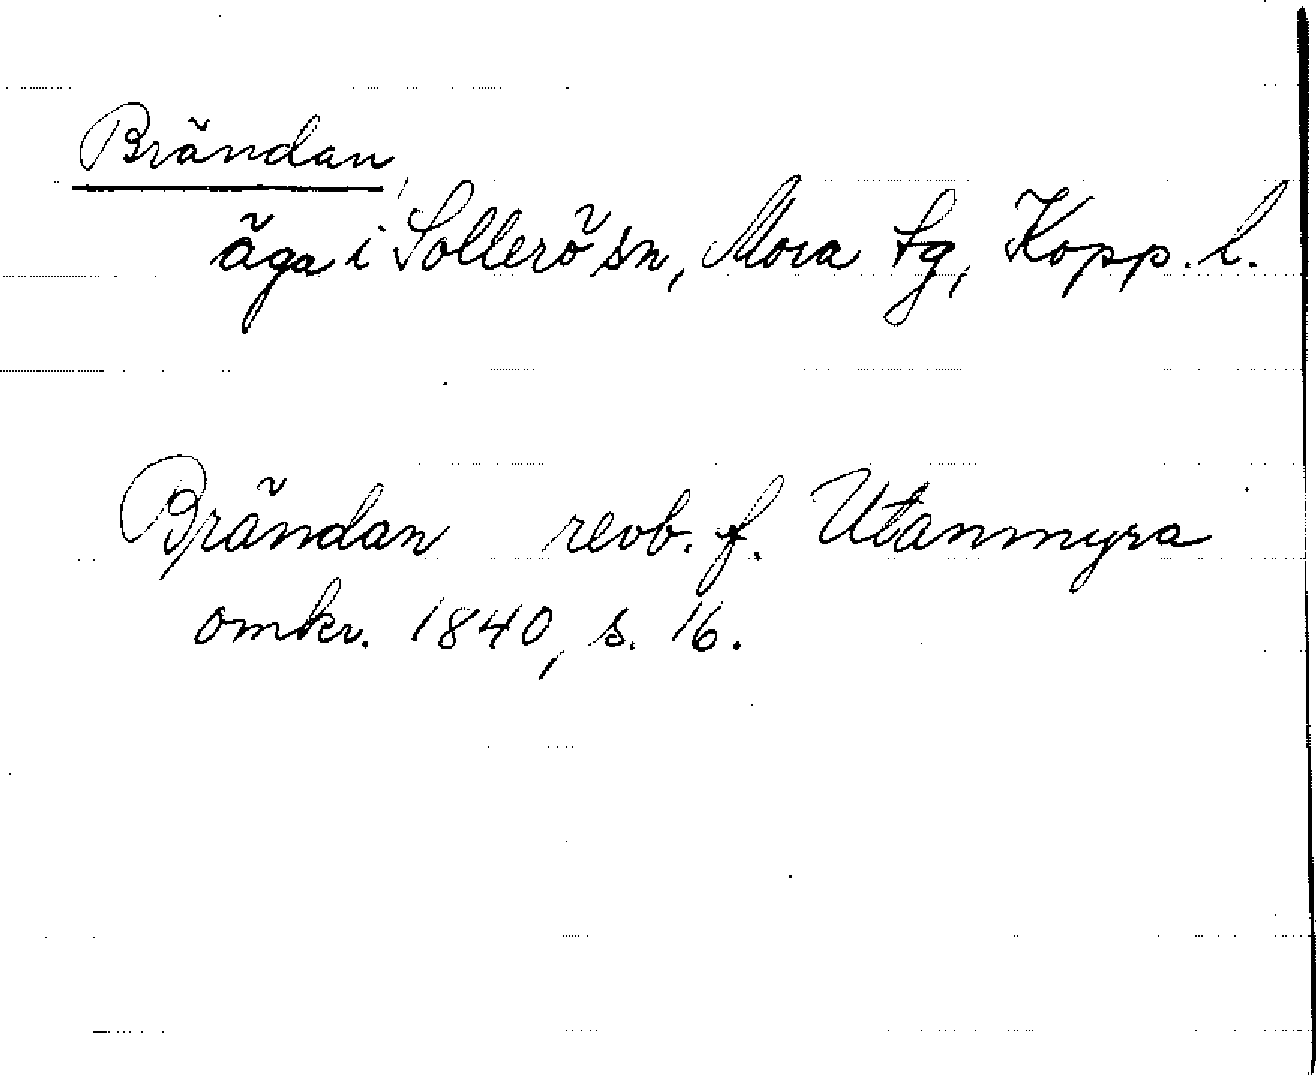 Brändan
äga i Sollerö sn, Mora tg, Kopp. l.
Brändan revb. f. Utanmyra
omkr. 1840, s. 16.